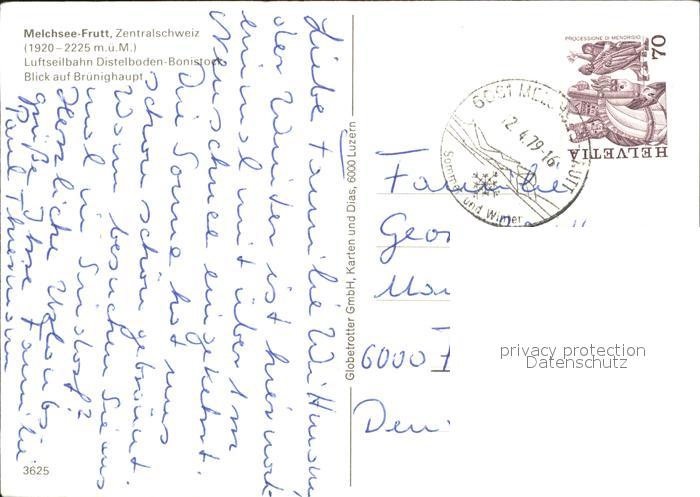 Melchsee-Frutt, Zentralschweiz
(1920–2225 m.ü.M.)
Luftseilbahn Distelboden-Bonistock
Blick auf Brünighaupt
Liebe Familie
der Winter ist hier noch
einmal mit über 1 m
Neuschnee eingekehrt.
Die Sonne hat uns
schon schön gebräunt.
Wann besuchen Sie uns
mal in
Herzliche Urlaubs
grüße Ihre Familie
Paul
3625
Globetrotter GmbH, Karten und Dias, 6000 Luzern
PROCESSIONE DI MENDRISIO
70
HELVETIA
12.4.79-16
Sommer und Winter
Familie
Geor
6000
privacy protection
Datenschutz